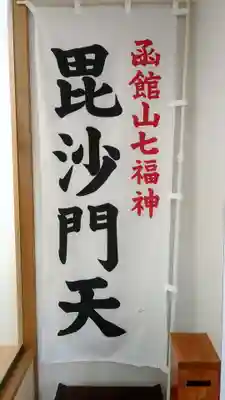 函館山七福神
毘沙門天